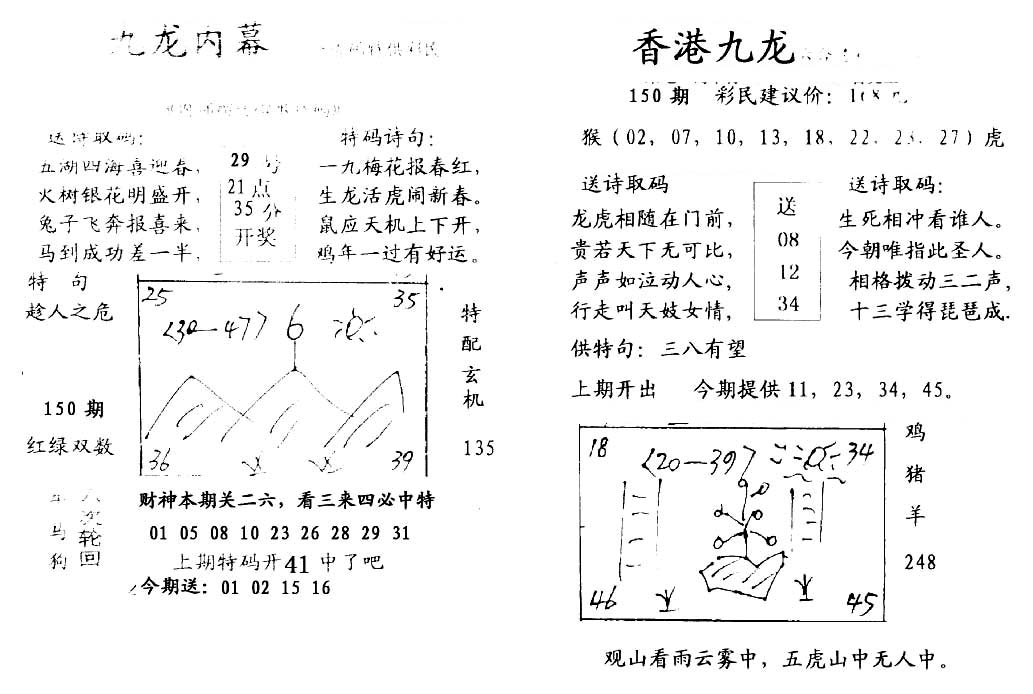 九龙内幕
送诗取码:
五湖四海喜迎春，
火树银花明盛开，
兔子飞奔报喜来，
马到成功差一半，
29 号
21 点
35 分
开奖
特码诗句:
一九梅花报春红，
生龙活虎闹新春。
鼠应天机上下开，
鸡年一过有好运。
特 句
趁人之危
150 期
红绿双数
25
35
<30—47> 6
36
39
特
配
玄
机
135
马
狗
次
轮
回
财神本期关二六，看三来四必中特
01 05 08 10 23 26 28 29 31
上期特码开41中了吧
今期送：01 02 15 16
香港九龙
150 期 彩民建议价：
猴（02，07，10，13，18，22，23，27）虎
送诗取码
龙虎相随在门前，
贵若天下无可比，
声声如泣动人心，
行走叫天妓女情，
送
08
12
34
送诗取码：
生死相冲看谁人。
今朝唯指此圣人。
相格拨动三二声，
十三学得琵琶成.
供特句：三八有望
上期开出 今期提供11，23，34，45。
18
<20—39>
34
46
45
鸡
猪
羊
248
观山看雨云雾中，五虎山中无人中。